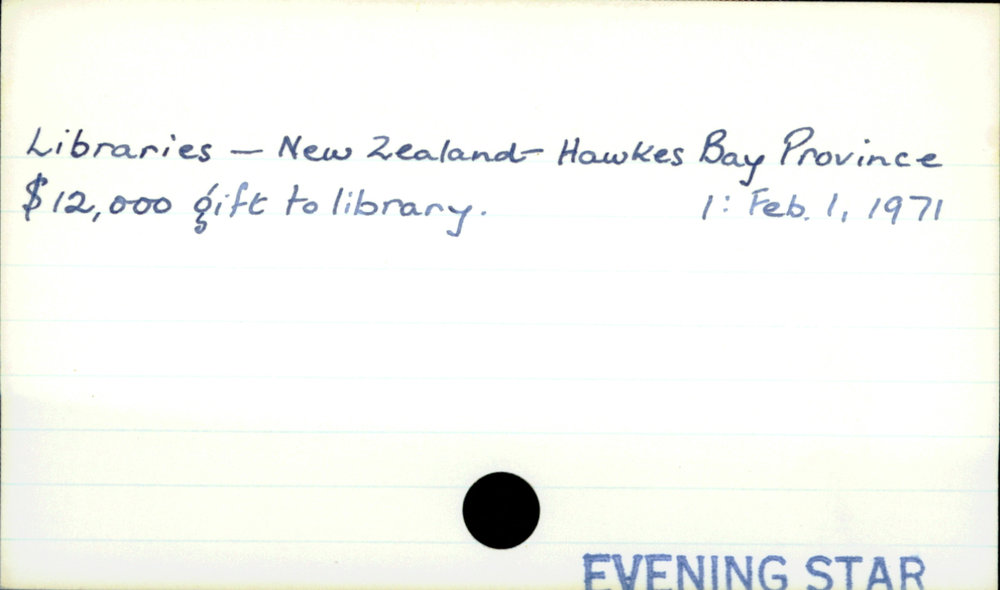 Libraries — New Zealand - Hawkes Bay Province
$12,000 gift to library. 1: Feb. 1, 1971
EVENING STAR